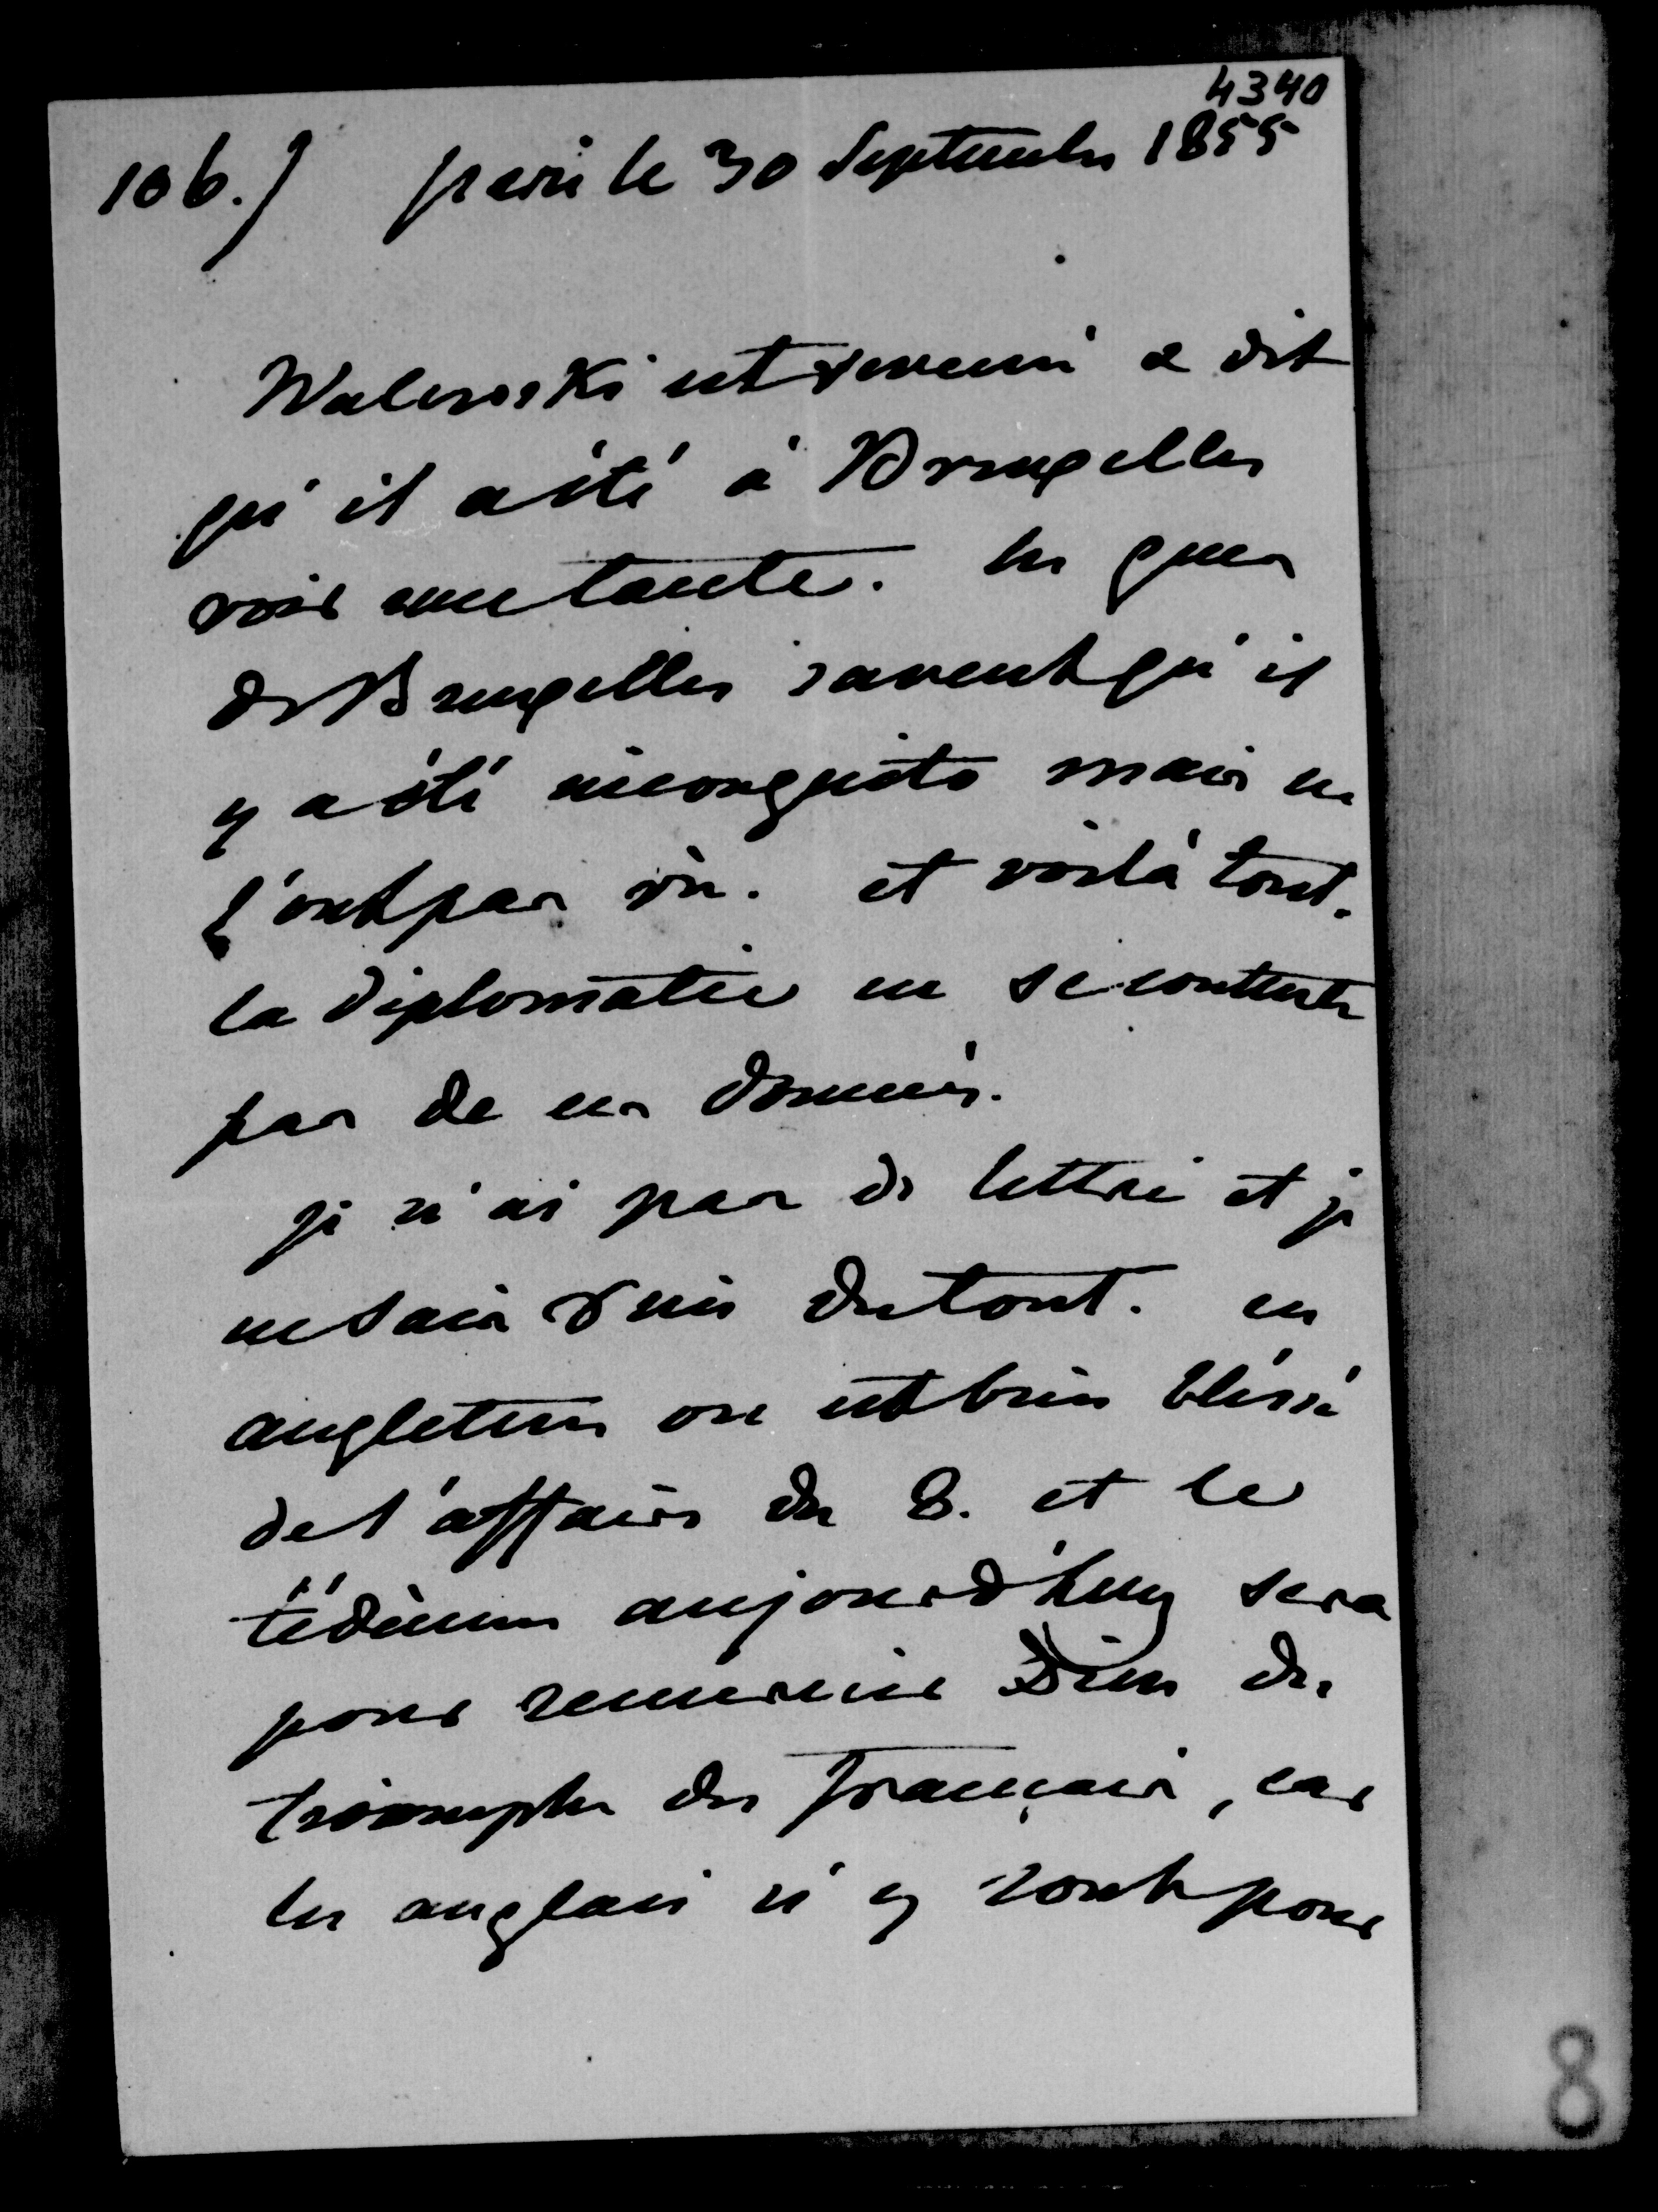 4340
106.) paris le 30 Septembre 1855
Walewski est revenu a dit
qu'il a été à Bruxelles
voir une tante. les gens
de Bruxelles savent qu'il
y a été incongnito mais ne
l'ont pas vu. et voilà tout.
la diplomatie ne se contente
pas de ces données.
je n'ai pas de lettre et je
ne sais rien du tout. en
angleterre on est bien bléssé
de l'affaire du 8. et le
tédéum aujourd'huy sera
pour remercier Dieu du
triomphe des français, car
les anglais n'y sont pour
8